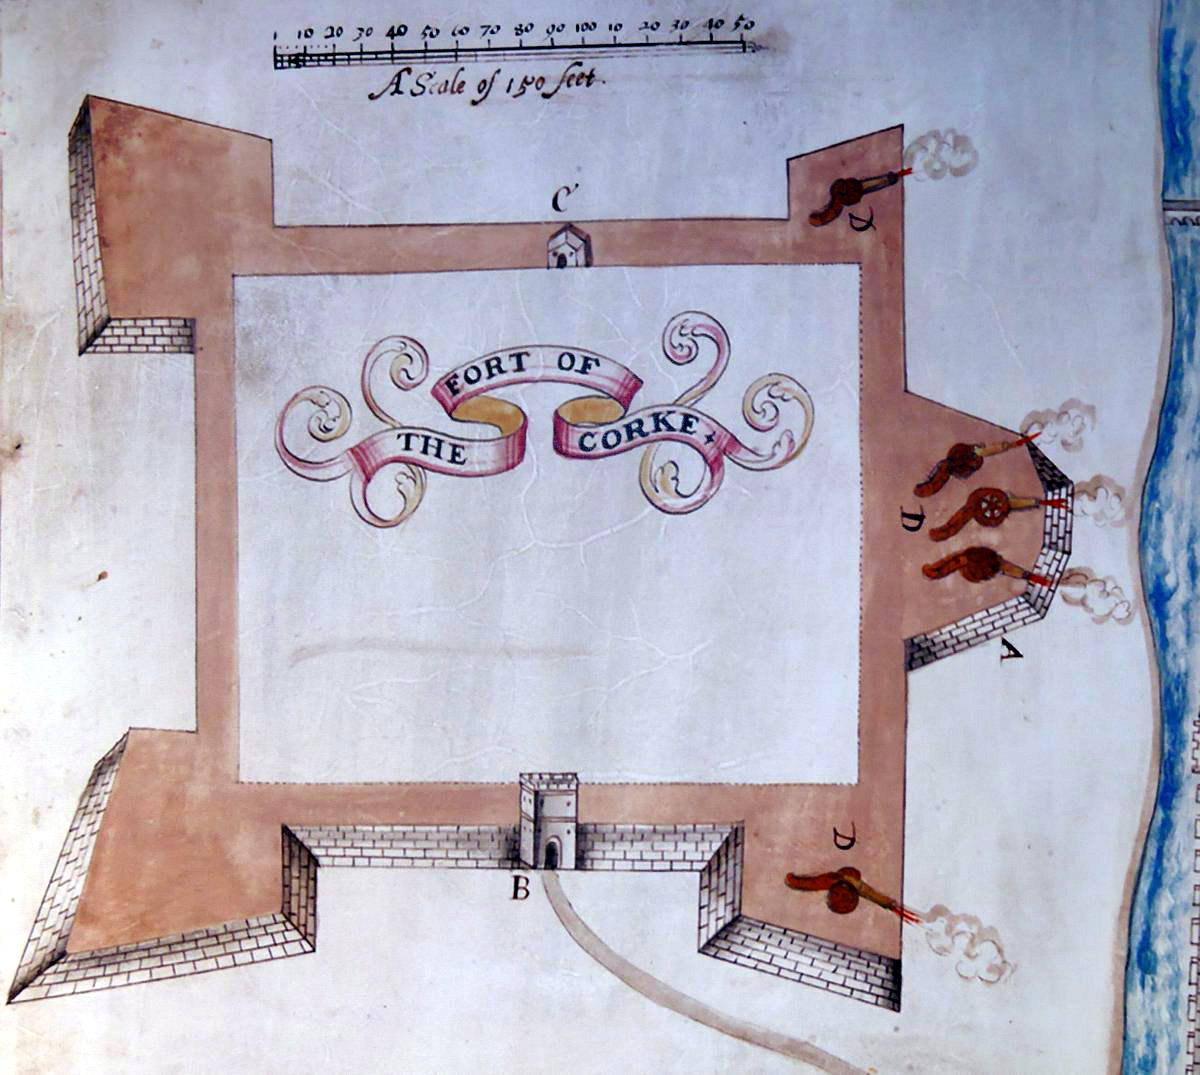 1 10 20 30 40 50 60 70 80 90 100 10 20 30 40 50
A Scale of 150 feet.
C
D
FORT OF
THE CORKE
D
A
D
B